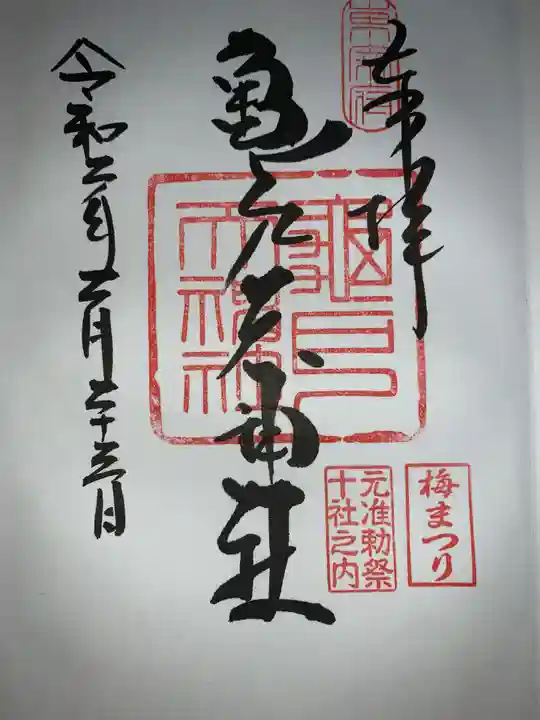 奉拝
亀戸天神社
令和二年二月二十三日
梅まつり
元准勅祭
十社之内